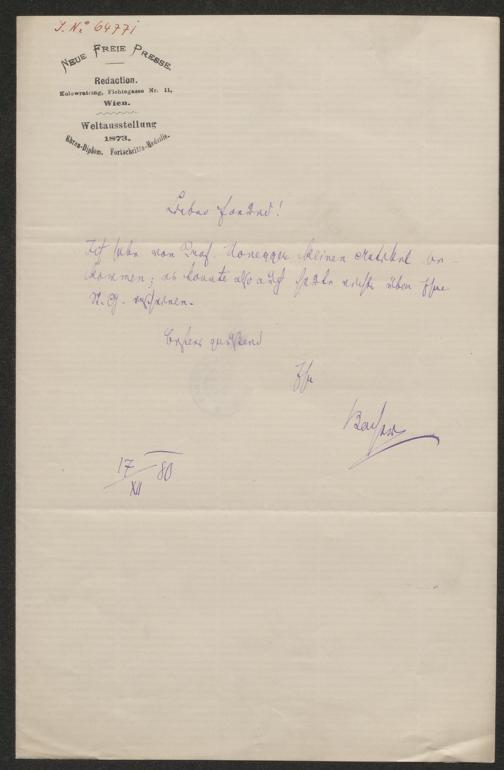 J. No 64771
NEUE FREIE PRESSE.
Redaction.
Kolowratring, Fichtegasse Nr. 11,
Wien.
Weltausstellung
1873.
Ehren-Diplom. Fortschritts-Medaille.
Lieber Freund!
Ich habe von Prof. Honegger keinen Artikel be-
kommen; es konnte also auch nichts über Ihre
N. G. erscheinen.
Bestens grüßend
Ihr
17/XII 80